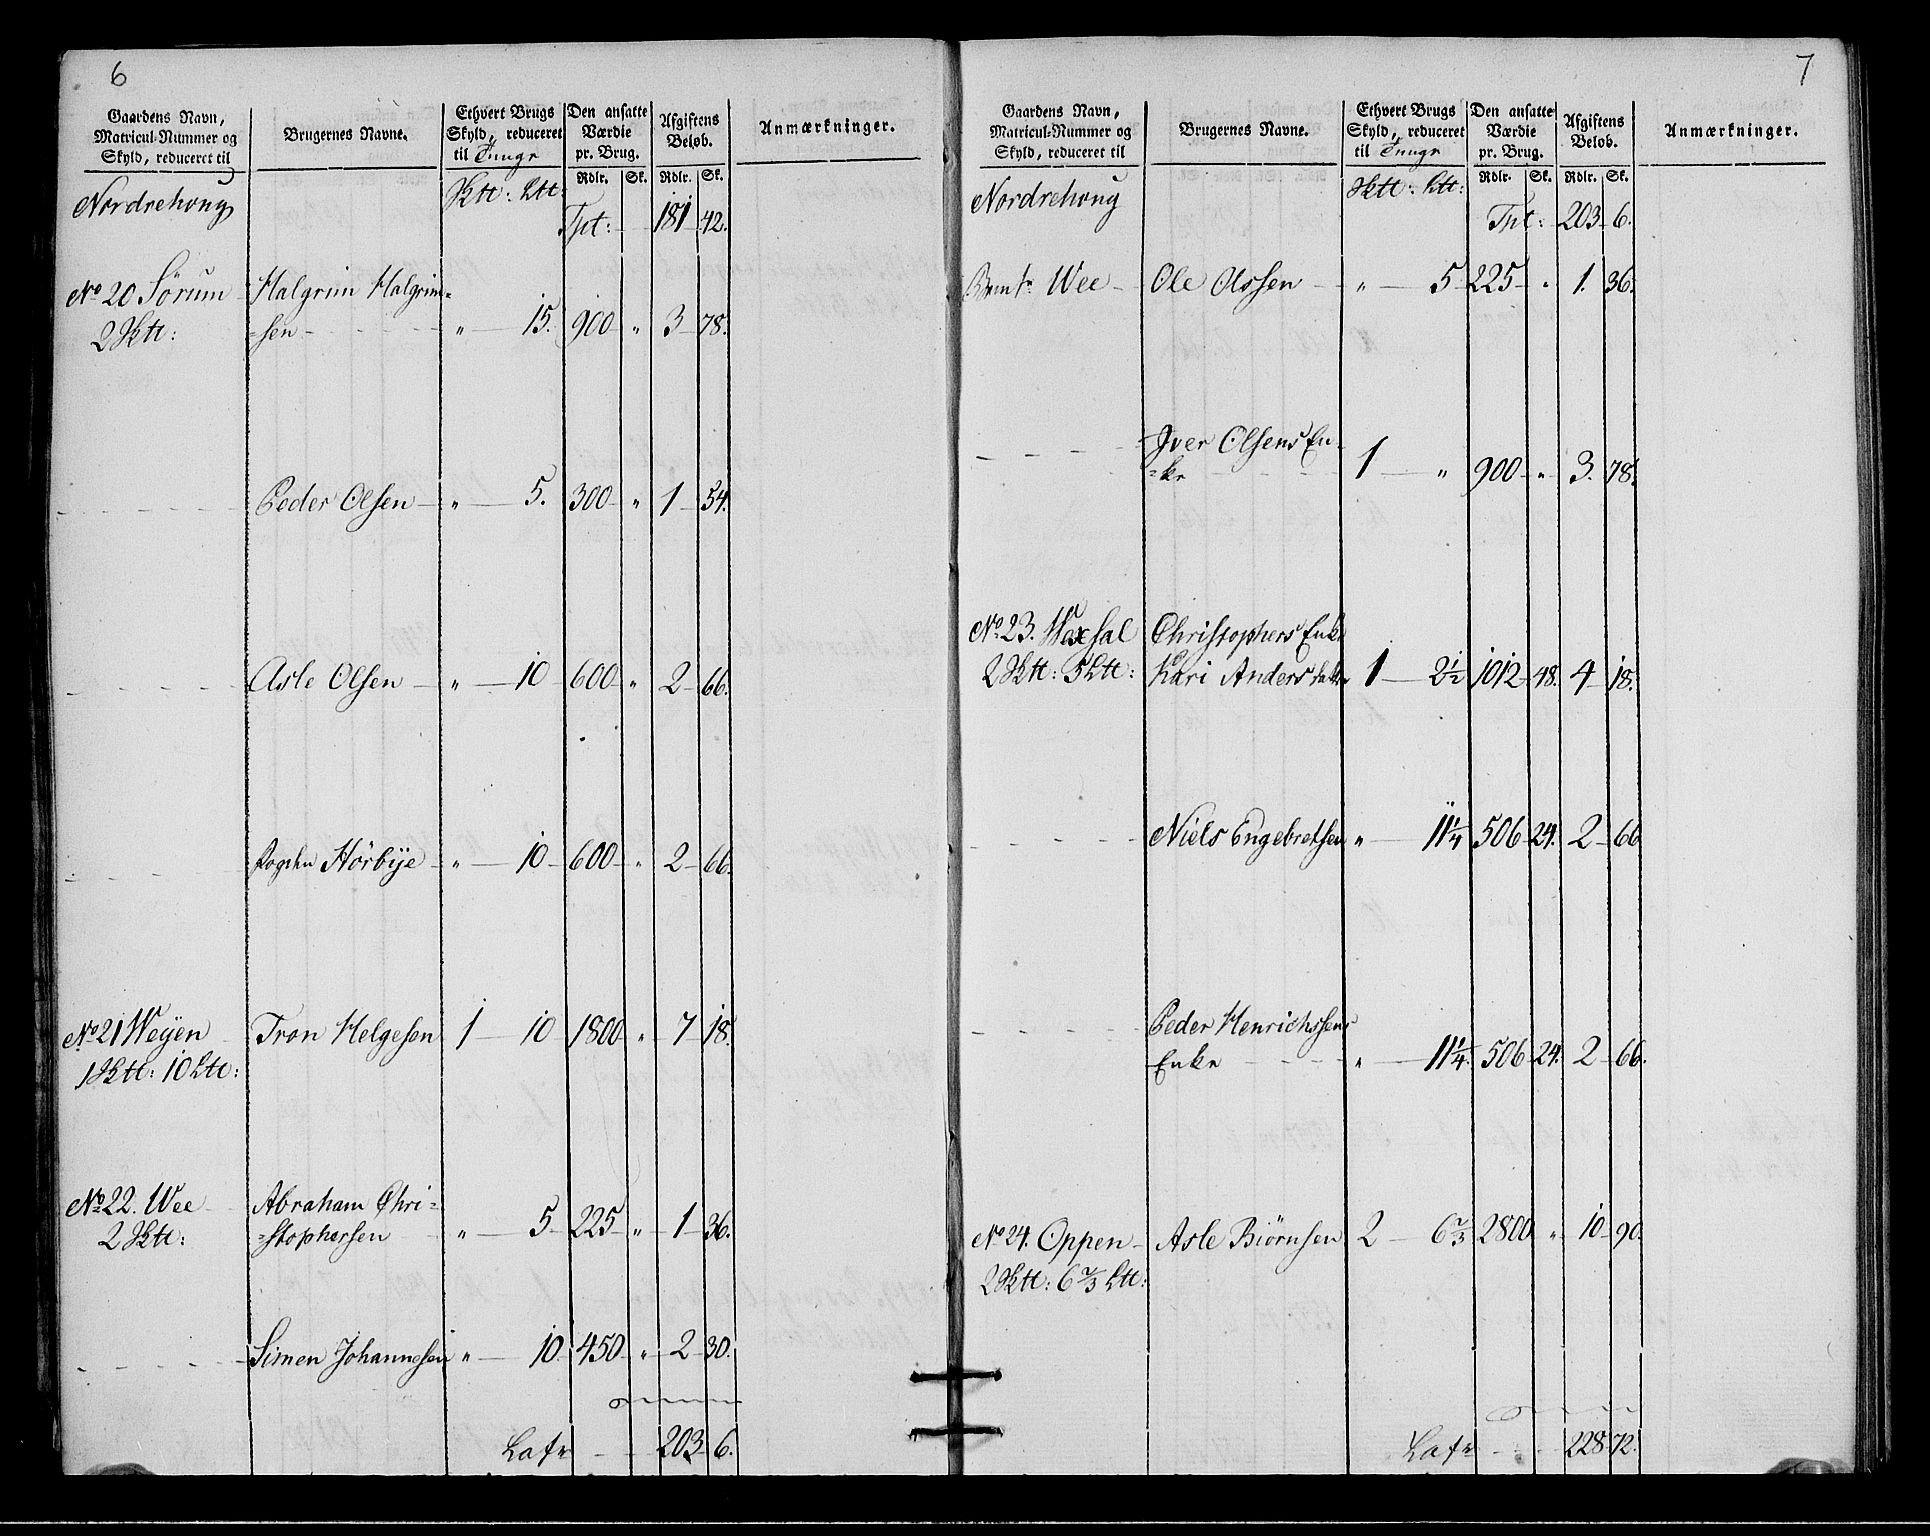 6
Gaardens Navn,
Matricul-Nummer og
Skyld, reduceret til
Brugernes Navne.
Ethvert Brugs
Skyld, reduceret
til Tunge
Den ansatte
Værdie
pr. Brug.
Afgiftens
Beløb.
Anmærkninger.
Rdlr. Sk. Rdlr. Sk.
Nordrehoug Sktt: Ltt:
Tpt: 181 42.
No 20 Sørum Halgrim Halgrim=
2 Sktt: =sen " 15. 900 " 3 78.
Peder Olsen " 5. 300 " 1 54.
Asle Olsen " 10 600 " 2 66.
Hørbye " 10 600 " 2 66.
No 21 Weyen Tron Helgesen 1 10 1800 " 7 18.
1 Sktt: 10 Ltt:
No 22. Wee Abraham Chri=
2 Sktt: =stophersen " 5 225 " 1 36.
Simen Johannesen " 10. 450 " 2 30.
Lat 203 6.
7
Gaardens Navn,
Matricul-Nummer og
Skyld, reduceret til
Brugernes Navne.
Ethvert Brugs
Skyld, reduceret
til Tunge
Den ansatte
Værdie
pr. Brug.
Afgiftens
Beløb.
Anmærkninger.
Rdlr. Sk. Rdlr. Sk.
Nordrehoug Sktt: Ltt:
Tpt: 203 6.
Wee Ole Olssen " 5 225 " 1. 36.
Iver Olsens En=
=ke 1 " 900 " 3. 78.
No 23. Wexsal Christophers Enke
2 Sktt: 5 Ltt: Kari Andersdatter 1 2½ 1012 48. 4 18.
Niels Engebretsen " 11¼ 506 24. 2 66
Peder Henrichssens
Enke " 11¼. 506 24. 2 66.
No 24. Oppen Asle Biørnsen 2 6⅔ 2800 " 10 90.
2 Sktt: 6⅔ Ltt:
Lat 228 72.